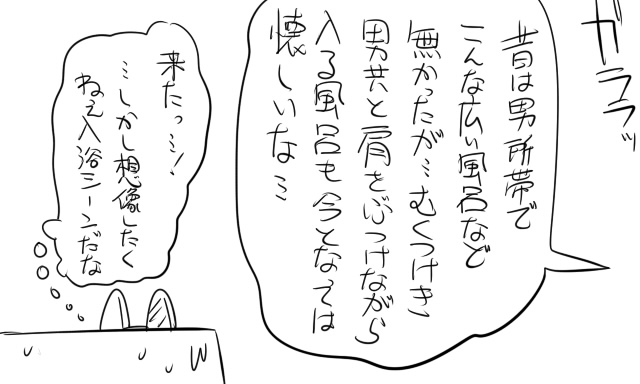 ガラララッ
昔は男所帯で
こんな広い風呂など
無かったが…むくつけき
男共と肩をぶつけながら
入る風呂も今となっては
懐しいな…
来たっ…!
…しかし想像したく
ねえ入浴シーンだな